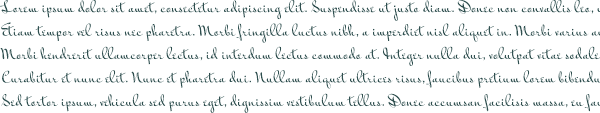 Lorem ipsum dolor sit amet, consectetur adipiscing elit. Suspendisse ut justo diam. Donec non convallis leo,
Etiam tempor vel risus nec pharetra. Morbi fringilla luctus nibh, a imperdiet nisl aliquet in. Morbi varius
Morbi hendrerit ullamcorper lectus, id interdum lectus commodo at. Integer nulla dui, volutpat vitae
Curabitur et nunc elit. Nunc et pharetra dui. Nullam aliquet ultrices risus, faucibus pretium lorem
Sed tortor ipsum, vehicula sed purus eget, dignissim vestibulum tellus. Donec accumsan facilisis massa, eu